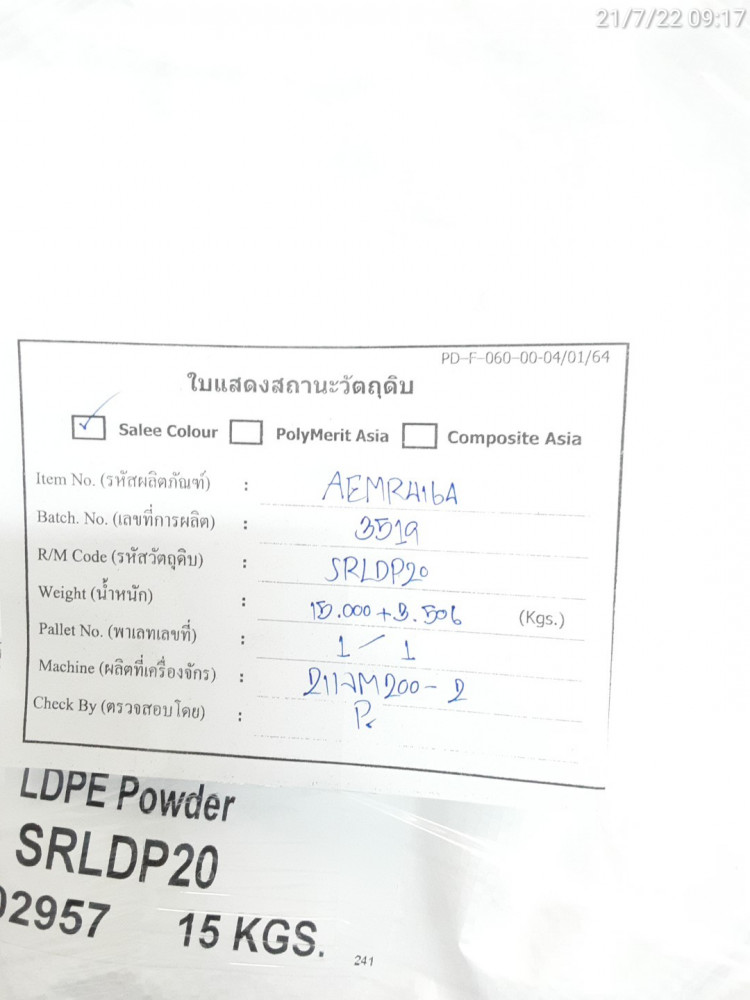 21/7/22 09:17
PD-F-060-00-04/01/64
ใบแสดงสถานะวัตถุดิบ
Salee Colour PolyMerit Asia Composite Asia
Item No. (รหัสผลิตภัณฑ์) : AEMR416A
Batch. No. (เลขที่การผลิต) : 3519
R/M Code (รหัสวัตถุดิบ) : SRLDP20
Weight (น้ำหนัก) : 15.000+3.506 (Kgs.)
Pallet No. (พาเลทเลขที่) : 1/1
Machine (ผลิตที่เครื่องจักร) :
Check By (ตรวจสอบโดย) :
LDPE Powder
SRLDP20
02957 15 KGS.
241